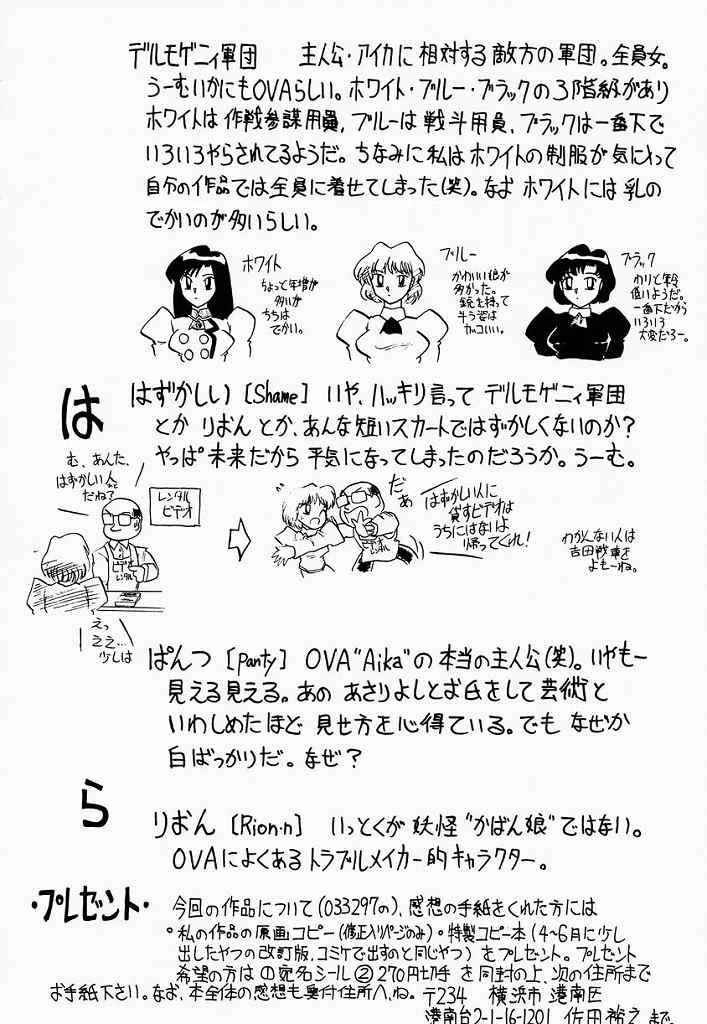 デルモゲニィ軍団　主人公・アイカに相対する敵方の軍団。全員女。
うーむいかにもOVAらしい。ホワイト・ブルー・ブラックの3階級があり
ホワイトは作戦参謀用員，ブルーは戦斗用員、ブラックは一番下で
いろいろやらされてるようだ。ちなみに私はホワイトの制服が気にいって
自分の作品では全員に着せてしまった(笑)。なおホワイトには乳の
でかいのが多いらしい。
ホワイト
ちょっと年増が
多いが
ちちは
でかい。
ブルー
かわいい娘が
多かった。
銃を持って
斗う姿は
カッコいい。
ブラック
わりと年令
低いようだ。
一番下だから
いろいろ
大変だろー。
は
はずかしい [Shame] いや、ハッキリ言って デルモゲニィ軍団
とか りおん とか、あんな短いスカートではずかしくないのか?
やっぱ 未来だから 平気になってしまったのだろうか。うーむ。
む、あんた、
はずかしい人
だねて
レンタル
ビデオ
えっ
ええ…
少しは
だぁ
はずかしい人に
貸すビデオは
うちにはないよ
帰ってくれ!
わかんない人は
吉田戦車を
よもーね。
ぱんつ [panty] OVA"Aika"の本当の主人公(笑)。いやもー
見える見える。あの あさりよしとお氏をして芸術と
いわしめたほど 見せ方を心得ている。でも なぜか
白ばっかりだ。なぜ?
ら
りおん [Rion・n] いっとくが 妖怪"かばん娘"ではない。
OVAによくあるトラブルメイカー的キャラクター。
・プレゼント・
今回の作品について(033297の)、感想の手紙をくれた方には
°私の作品の原画コピー(修正入りページのみ)・特製コピー本(4〜6月に少し
出したやつの改訂版、コミケで出すのと同じやつ)をプレゼント。プレゼント
希望の方は①宛名シール②270円切手を同封の上、次の住所まで
お手紙下さい。なお、本全体の感想も奥付住所へ、ね。〒234 横浜市港南区
港南台2-1-16-1201 佐田裕之まで